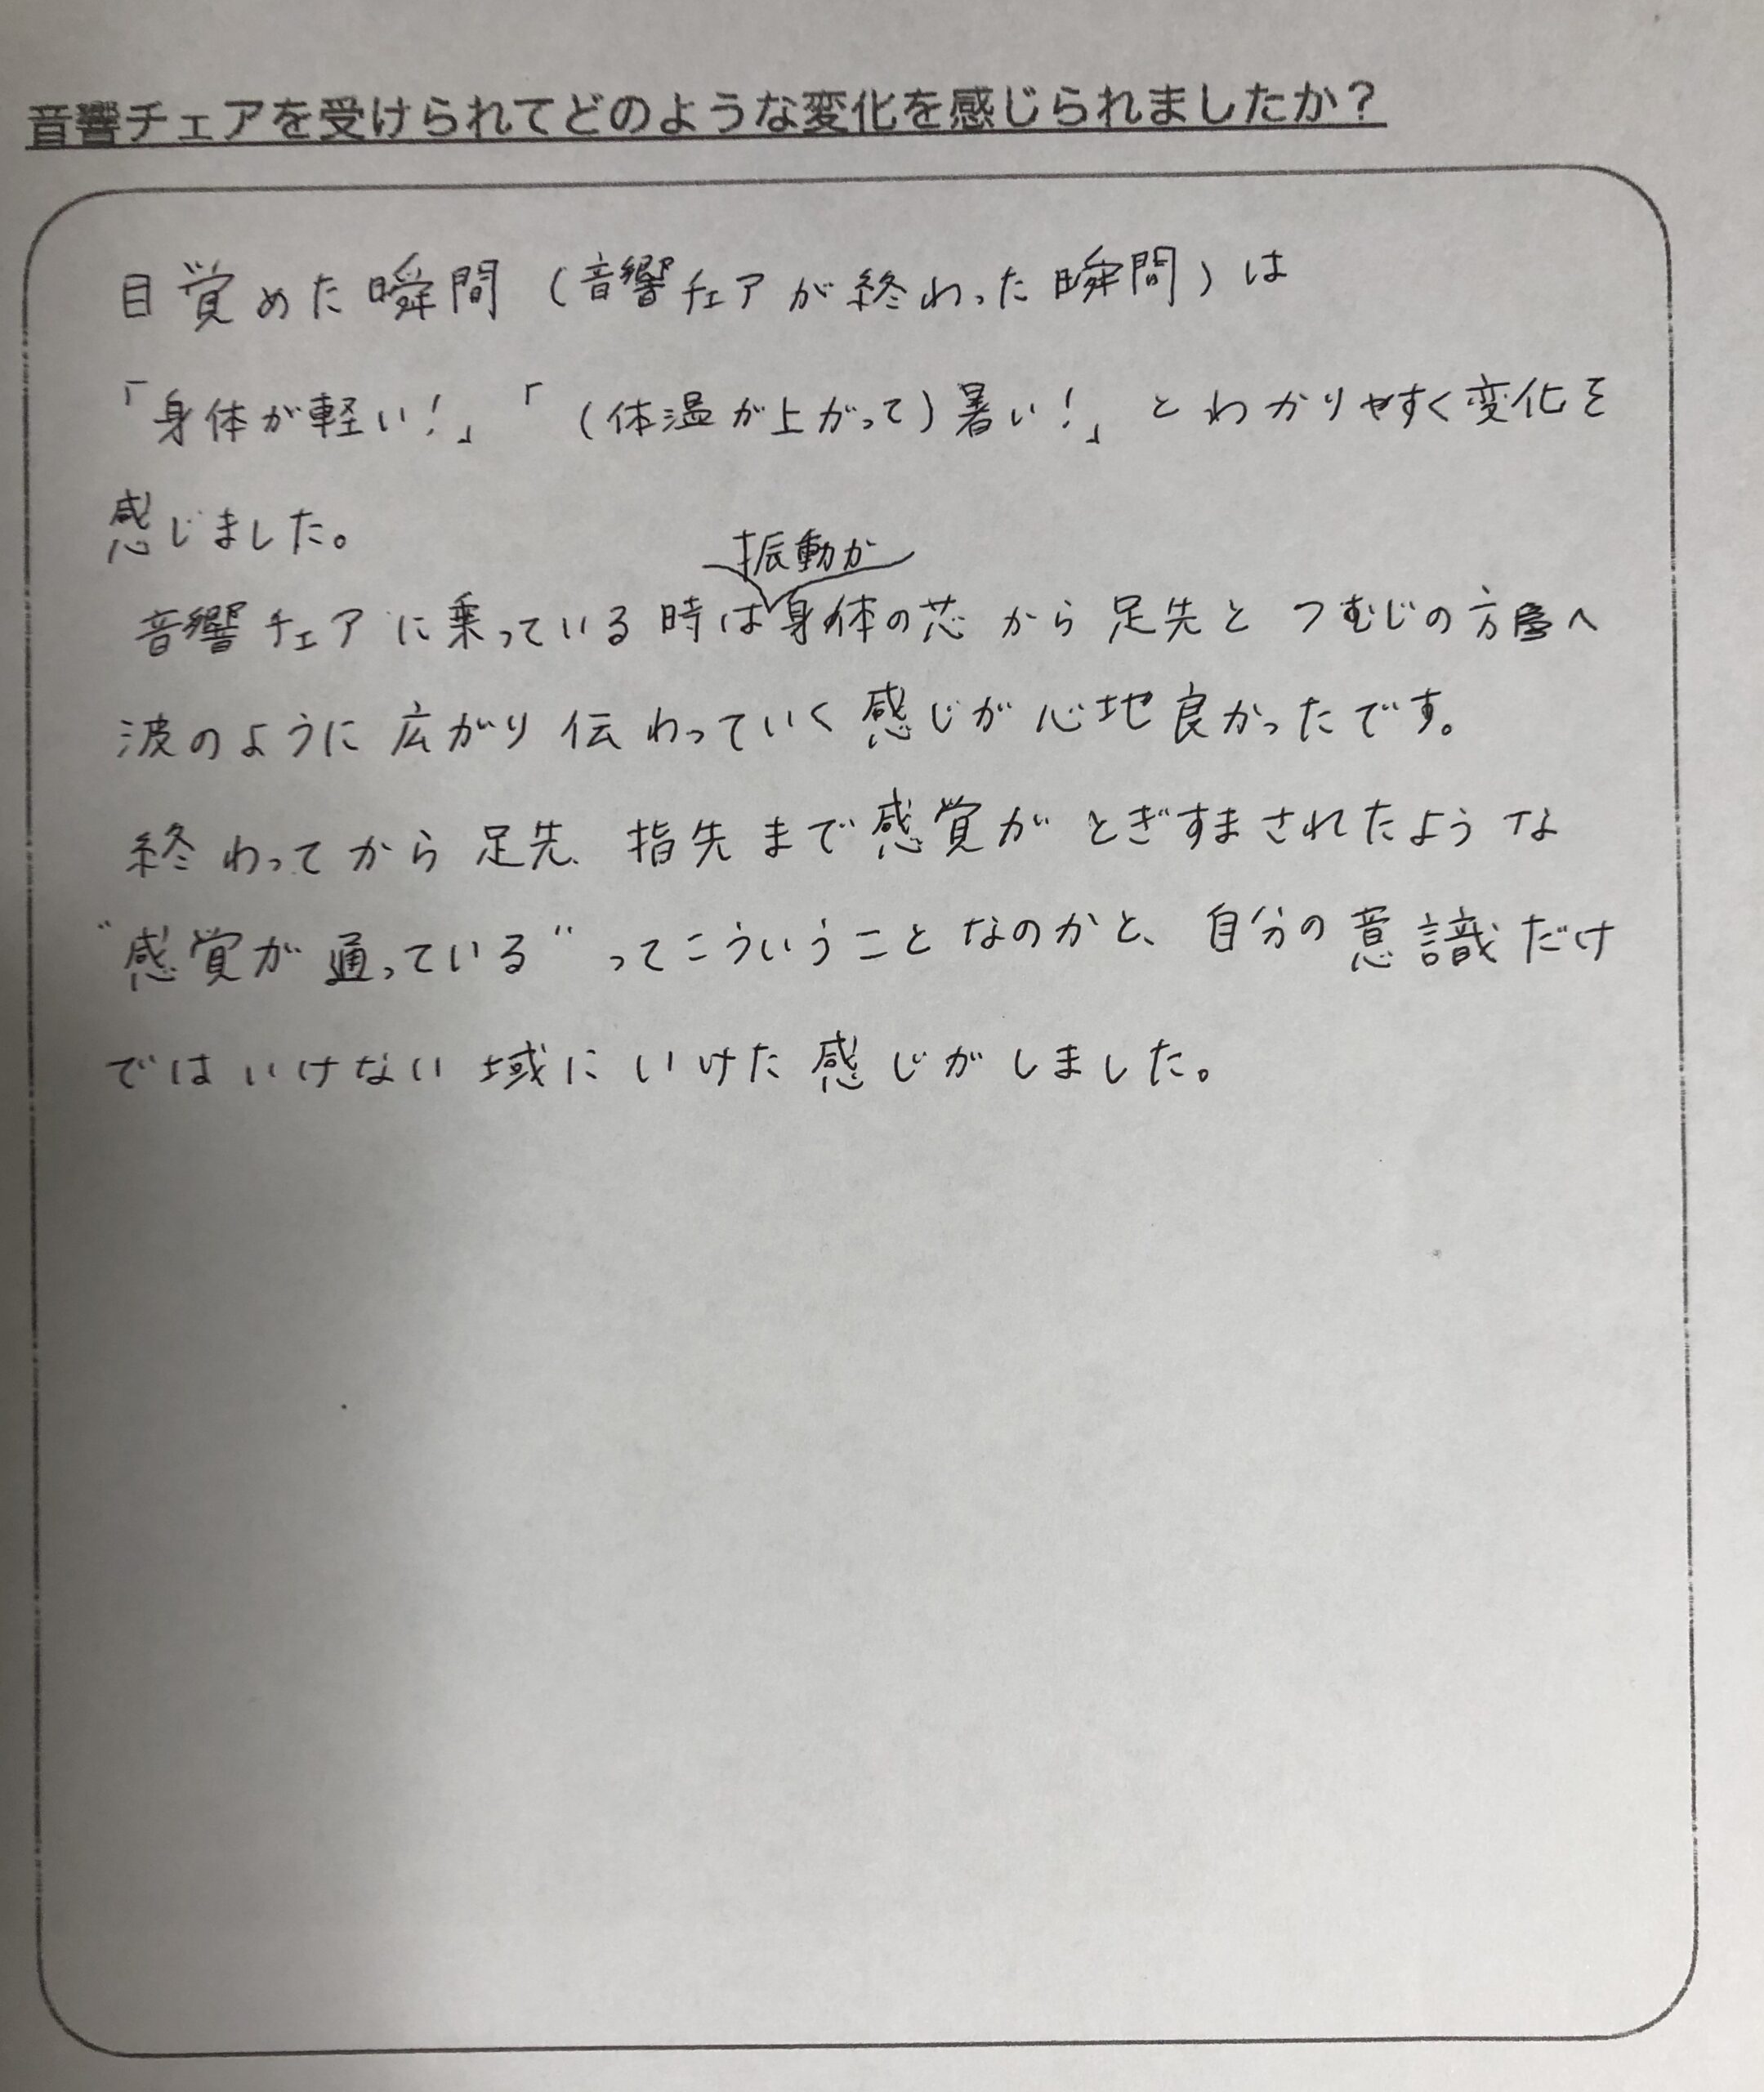 音響チェアを受けられてどのような変化を感じられましたか？
目覚めた瞬間（音響チェアが終わった瞬間）は
「身体が軽い！」「（体温が上がって）暑い！」とわかりやすく変化を
感じました。
振動が
音響チェアに乗っている時は身体の芯から足先とつむじの方へ
波のように広がり伝わっていく感じが心地良かったです。
終わってから足先、指先まで感覚がとぎすまされたような
“感覚が通っている“ってこういうことなのかと、自分の意識だけ
ではいけない域にいけた感じがしました。